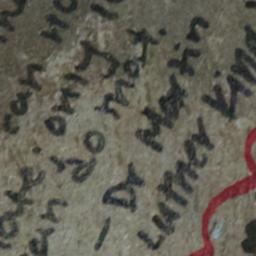 can no
ate: only lo
an do that.
- Dr Martin
Luther King